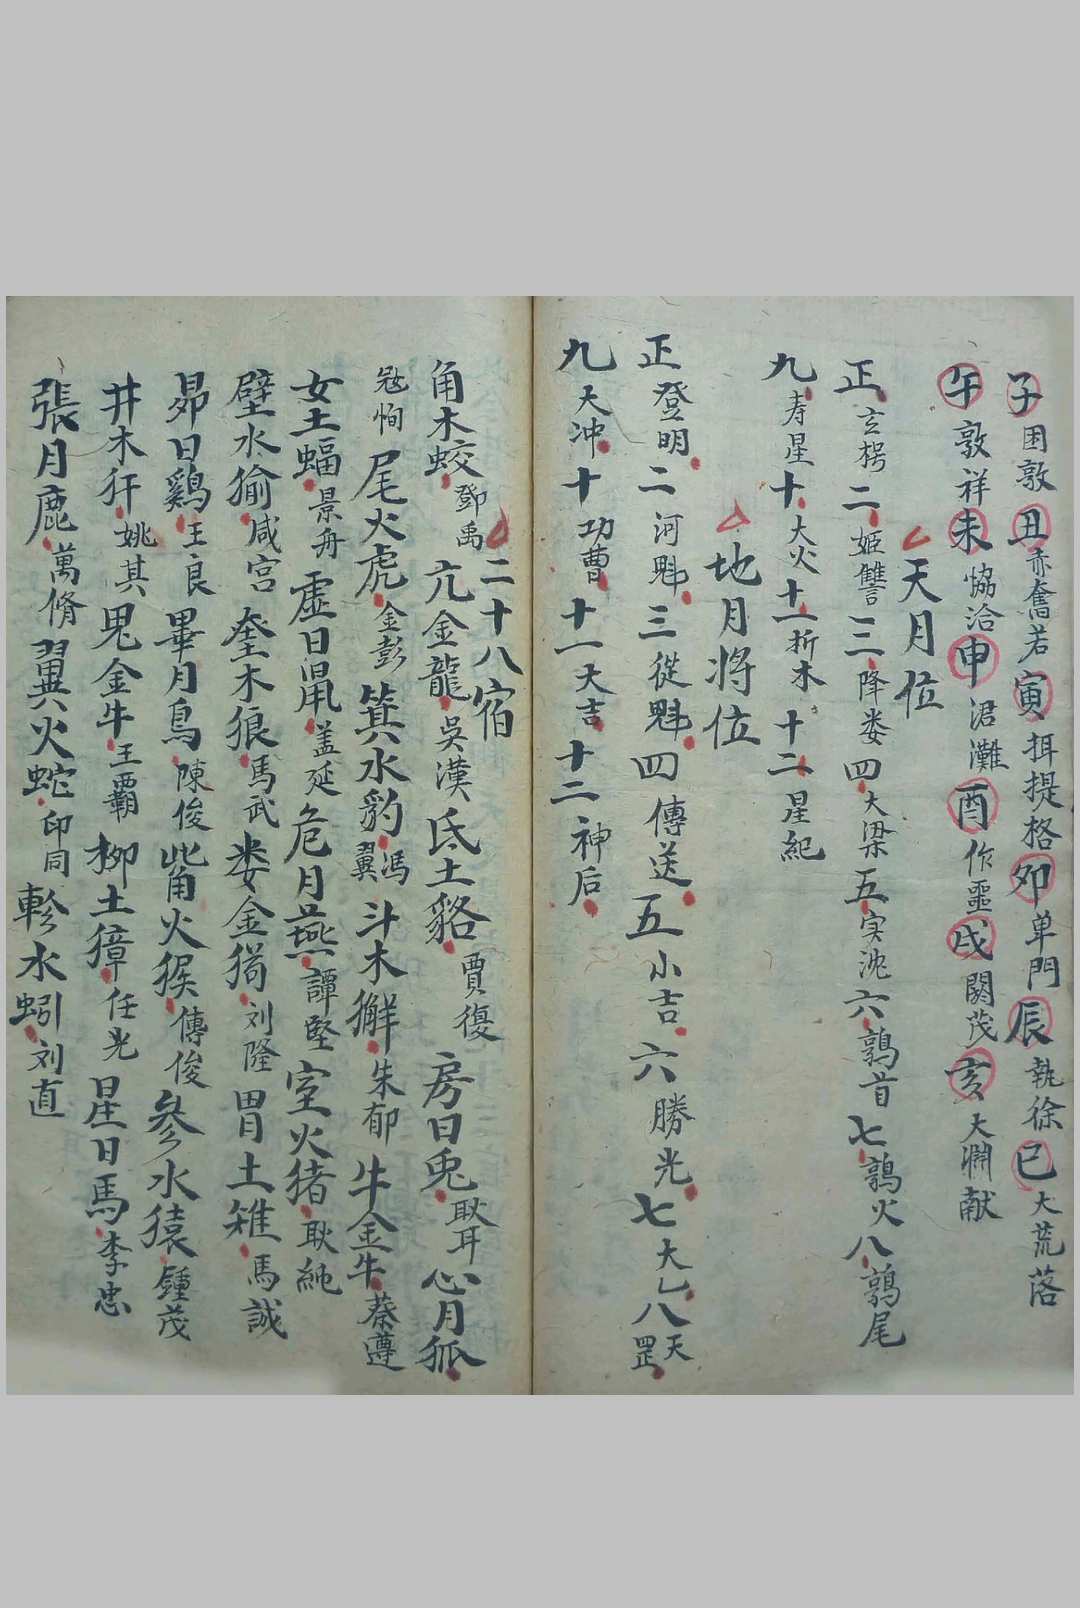 子困敦丑赤奮若寅揖提格卯单門辰執徐巳大荒落
午敦祥未恊洽申涒灘酉作噩戌閼茂亥大淵献
天月位
正玄枵二姫讐三降娄四大梁五实沈六鶉首七鶉火八鶉尾
九寿星十大火十一折木十二星紀
地月将位
正登明二河魁三從魁四傳送五小吉六勝光七大乙八天罡
九天冲十功曹十一大吉十二神后
二十八宿
角木蛟鄧禹亢金龍吳漢氐土貉賈復房日兎耿耳心月狐
恂尾火虎金彭箕水豹馮翼斗木獬朱郁牛金牛蔡遵
女土蝠景舟虚日鼠盖延危月燕譚堅室火猪耿純
壁水㺄咸宫奎木狼馬武娄金狗刘隆胃土雉馬誠
昴日鷄王良畢月烏陳俊觜火猴傳俊參水猿鍾茂
井木犴姚其鬼金牛王霸柳土獐任光星日馬李忠
張月鹿萬脩翼火蛇印同軫水蚓刘直